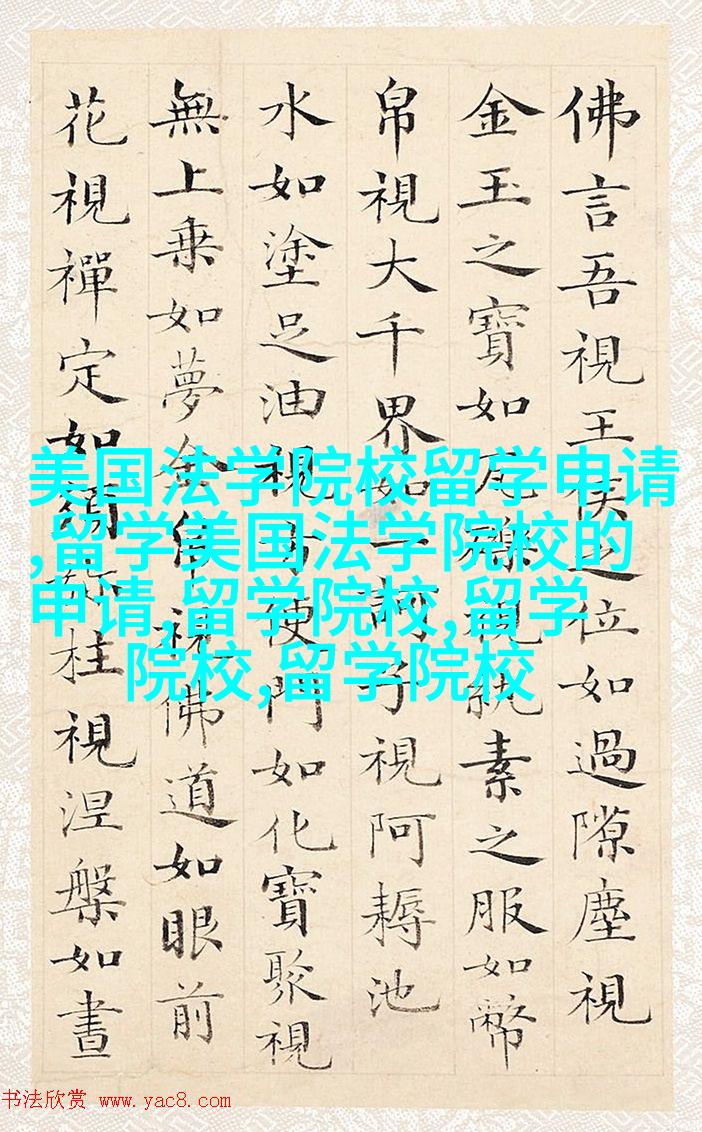 佛言吾視王侯之位如過隙塵視
金玉之寶如瓦礫視紈素之服如幣
帛視大千界如一訶子視阿耨池
水如塗足油視方便門如化寶聚視
無上乗如夢金帛視佛道如眼前
花視禪定如須彌柱視涅槃如晝
美国法学院校留学申请
,留学美国法学院校的
申请,留学院校,留学
院校,留学院校
书法欣赏 www.yac8.com